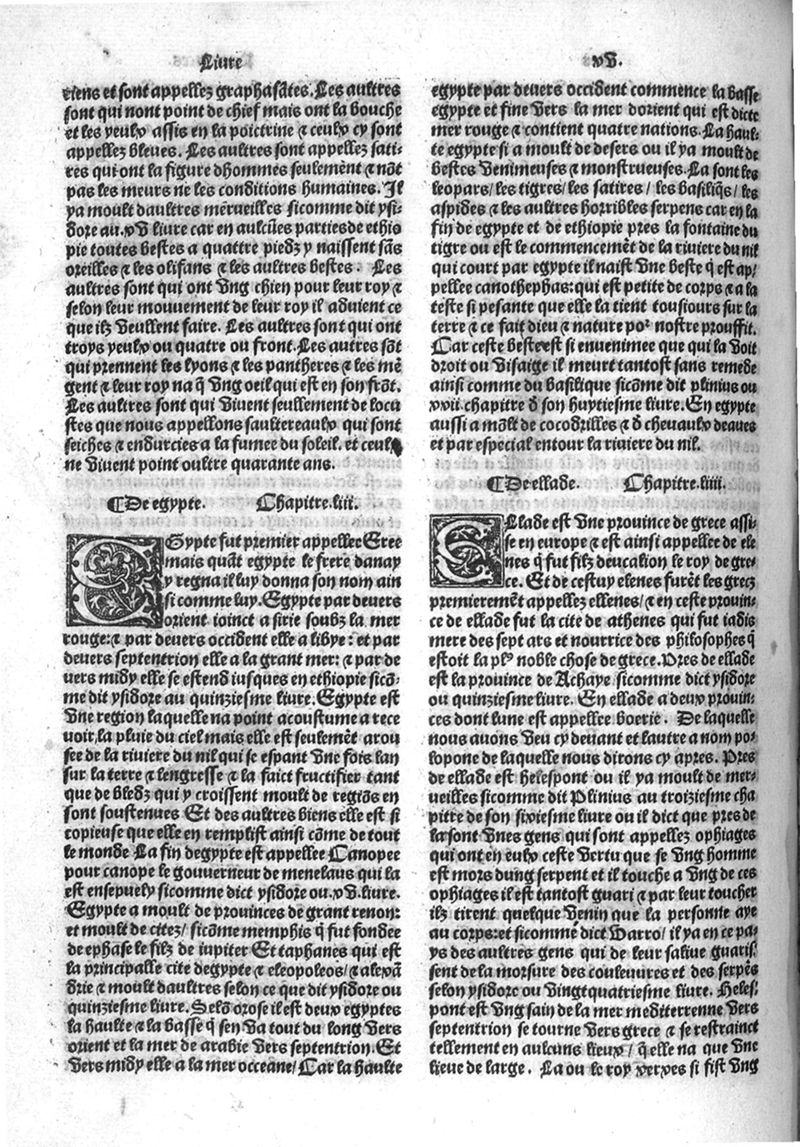 Liure
riens et sont appellez graphasātes. Les aultres
sont qui nont point de chief mais ont la bouche
et les yeulx assis en la poictrine ⁊ ceulx cy sont
appellez bleues. Les aultres sont appellez sati-
res qui ont la figure dhommes seulemēt ⁊ nōt
pas les meurs ne les conditions humaines. Il
ya moult daultres merueilles sicomme dit ysi-
dore au. xv liure car en aulcūes parties de ethio
pie toutes bestes a quattre piedz y naissent sās
oreilles ⁊ les olifans ⁊ les aultres bestes. Les
aultres sont qui ont vng chien pour leur roy ⁊
selon leur mouuement de leur roy il aduient ce
que ilz veullent faire. Les aultres sont qui ont
troys yeulx ou quatre ou front. Les autres sōt
qui prennent les lyons ⁊ les pantheres ⁊ les mē
gent ⁊ leur roy na q̄ vng oeil qui est en son frōt.
Les aultres sont qui viuent seullement de locu
stes que nous appellons saultereaulx qui sont
seiches ⁊ endurcies a la fumee du soleil. et ceulx
ne viuent point oultre quarante ans.
¶De egypte. Chapitre. liii.
EGypte fut premier appellee Eree
mais quāt egypte le frere danay
y regna il luy donna son nom ain
si comme luy. Egypte par deuers
orient ioinct a sirie soubz la mer
rouge: ⁊ par deuers occident elle a libye: et par
deuers septentrion elle a la grant mer: ⁊ par de
uers midy elle se estend iusques en ethiopie sicō-
me dit ysidore au quinziesme liure. Egypte est
vne region laquelle na point acoustume a rece
uoir la pluie du ciel mais elle est seulemēt arou
see de la riuiere du nil qui se espant vne fois lan
sur la terre ⁊ lengresse ⁊ la faict fructifier tant
que de bledz qui y croissent moult de regiōs en
sont soustenues Et des aultres biens elle est si
copieuse que elle en remplist ainsi cōme de tout
le monde La fin degypte est appellee Canopee
pour canope le gouuerneur de menelaus qui la
est ensepuely sicomme dict ysidore ou. xv. liure.
Egypte a moult de prouinces de grant renon:
et moult de citez/ sicōme memphis q̄ fut fondee
de ephase le filz de iupiter Et taphanes qui est
la principalle cite degypte ⁊ eleopoleos/ ⁊ alexā
drie ⁊ moult daultres selon ce que dit ysidore ou
quinziesme liure. Selō orose il est deux egyptes
la haulte ⁊ la basse q̄ sen va tout du long vers
orient et la mer de arabie vers septentrion. Et
vers midy elle a la mer occeane/ Car la haulte
xv.
egypte par deuers occident commence la basse
egypte et fine vers la mer dorient qui est dicte
mer rouge ⁊ contient quatre nations. La haul-
te egypte si a moult de desers ou il ya moult de
bestes venimeuses ⁊ monstrueuses. La sont les
leopars/ les tigres/ les satires/ les basiliq̄s/ les
aspides ⁊ les aultres horribles serpens car en la
fin de egypte et de ethiopie pres la fontaine du
tigre ou est le commencemēt de la riuiere du nil
qui court par egypte il naist vne beste q̄ est ap/
pellee canothephas: qui est petite de corps ⁊ a la
teste si pesante que elle la tient tousiours sur la
terre ⁊ ce fait dieu ⁊ nature poꝛ nostre prouffit.
Car ceste beste est si enuenimee que qui la voit
droit ou visaige il meurt tantost sans remede
ainsi comme du basilique sicōme dit plinius ou
xxii. chapitre d̄ son huytiesme liure. En egypte
aussi a mōlt de cocodrilles ⁊ d̄ cheuaulx deaues
et par especial entour la riuiere du nil.
¶De ellade. Chapitre. liiii.
ELlade est vne prouince de grece assi-
se en europe ⁊ est ainsi appellee de ele
nes q̄ fut filz deucalion le roy de gre-
ce. Et de cestuy elenes furēt les grecz
premieremēt appellez ellenes/ ⁊ en ceste prouin-
ce de ellade fut la cite de athenes qui fut iadis
mere des sept ars et nourrice des philosophes q̄
estoit la plꝰ noble chose de grece. Pres de ellade
est la prouince de Achaye sicomme dict ysidore
ou quinziesme liure. En ellade a deux prouin-
ces dont lune est appellee boerie. De laquelle
nous auons veu cy deuant et lautre a nom po-
lopone de laquelle nous dirons cy apres. Pres
de ellade est helespont ou il ya moult de mer-
ueilles sicomme dit Plinius au troiziesme cha
pitre de son sixiesme liure ou il dict que pres de
la sont vnes gens qui sont appellez ophiages
qui ont en eulx ceste vertu que se vng homme
est mors dung serpent et il touche a vng de ces
ophiages il est tantost guari ⁊ par leur toucher
ilz tirent quelque venin que la personne aye
au corps: et sicomme dict Varro/ il ya en ce pa-
ys des aultres gens qui de leur saliue guaris-
sent de la morsure des couleuures et des serpēs
selon ysidore ou vingtquatriesme liure. Heles-
pont est vng sain de la mer mediterrenne vers
septentrion se tourne vers grece ⁊ se restrainct
tellement en aulcuns lieux/ q̄ elle na que vne
lieue de large. La ou le roy xerxes si fist vng